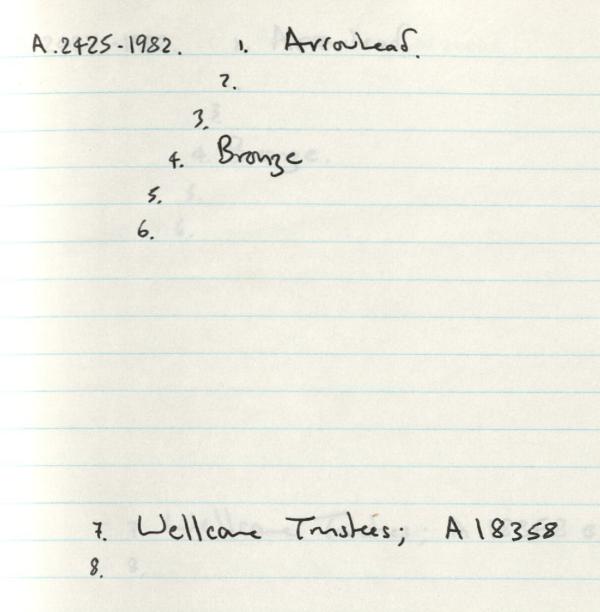 A.2425-1982. 1. Arrowhead.
2.
3.
4. Bronze
5.
6.
7. Wellcome Trustees; A18358
8.